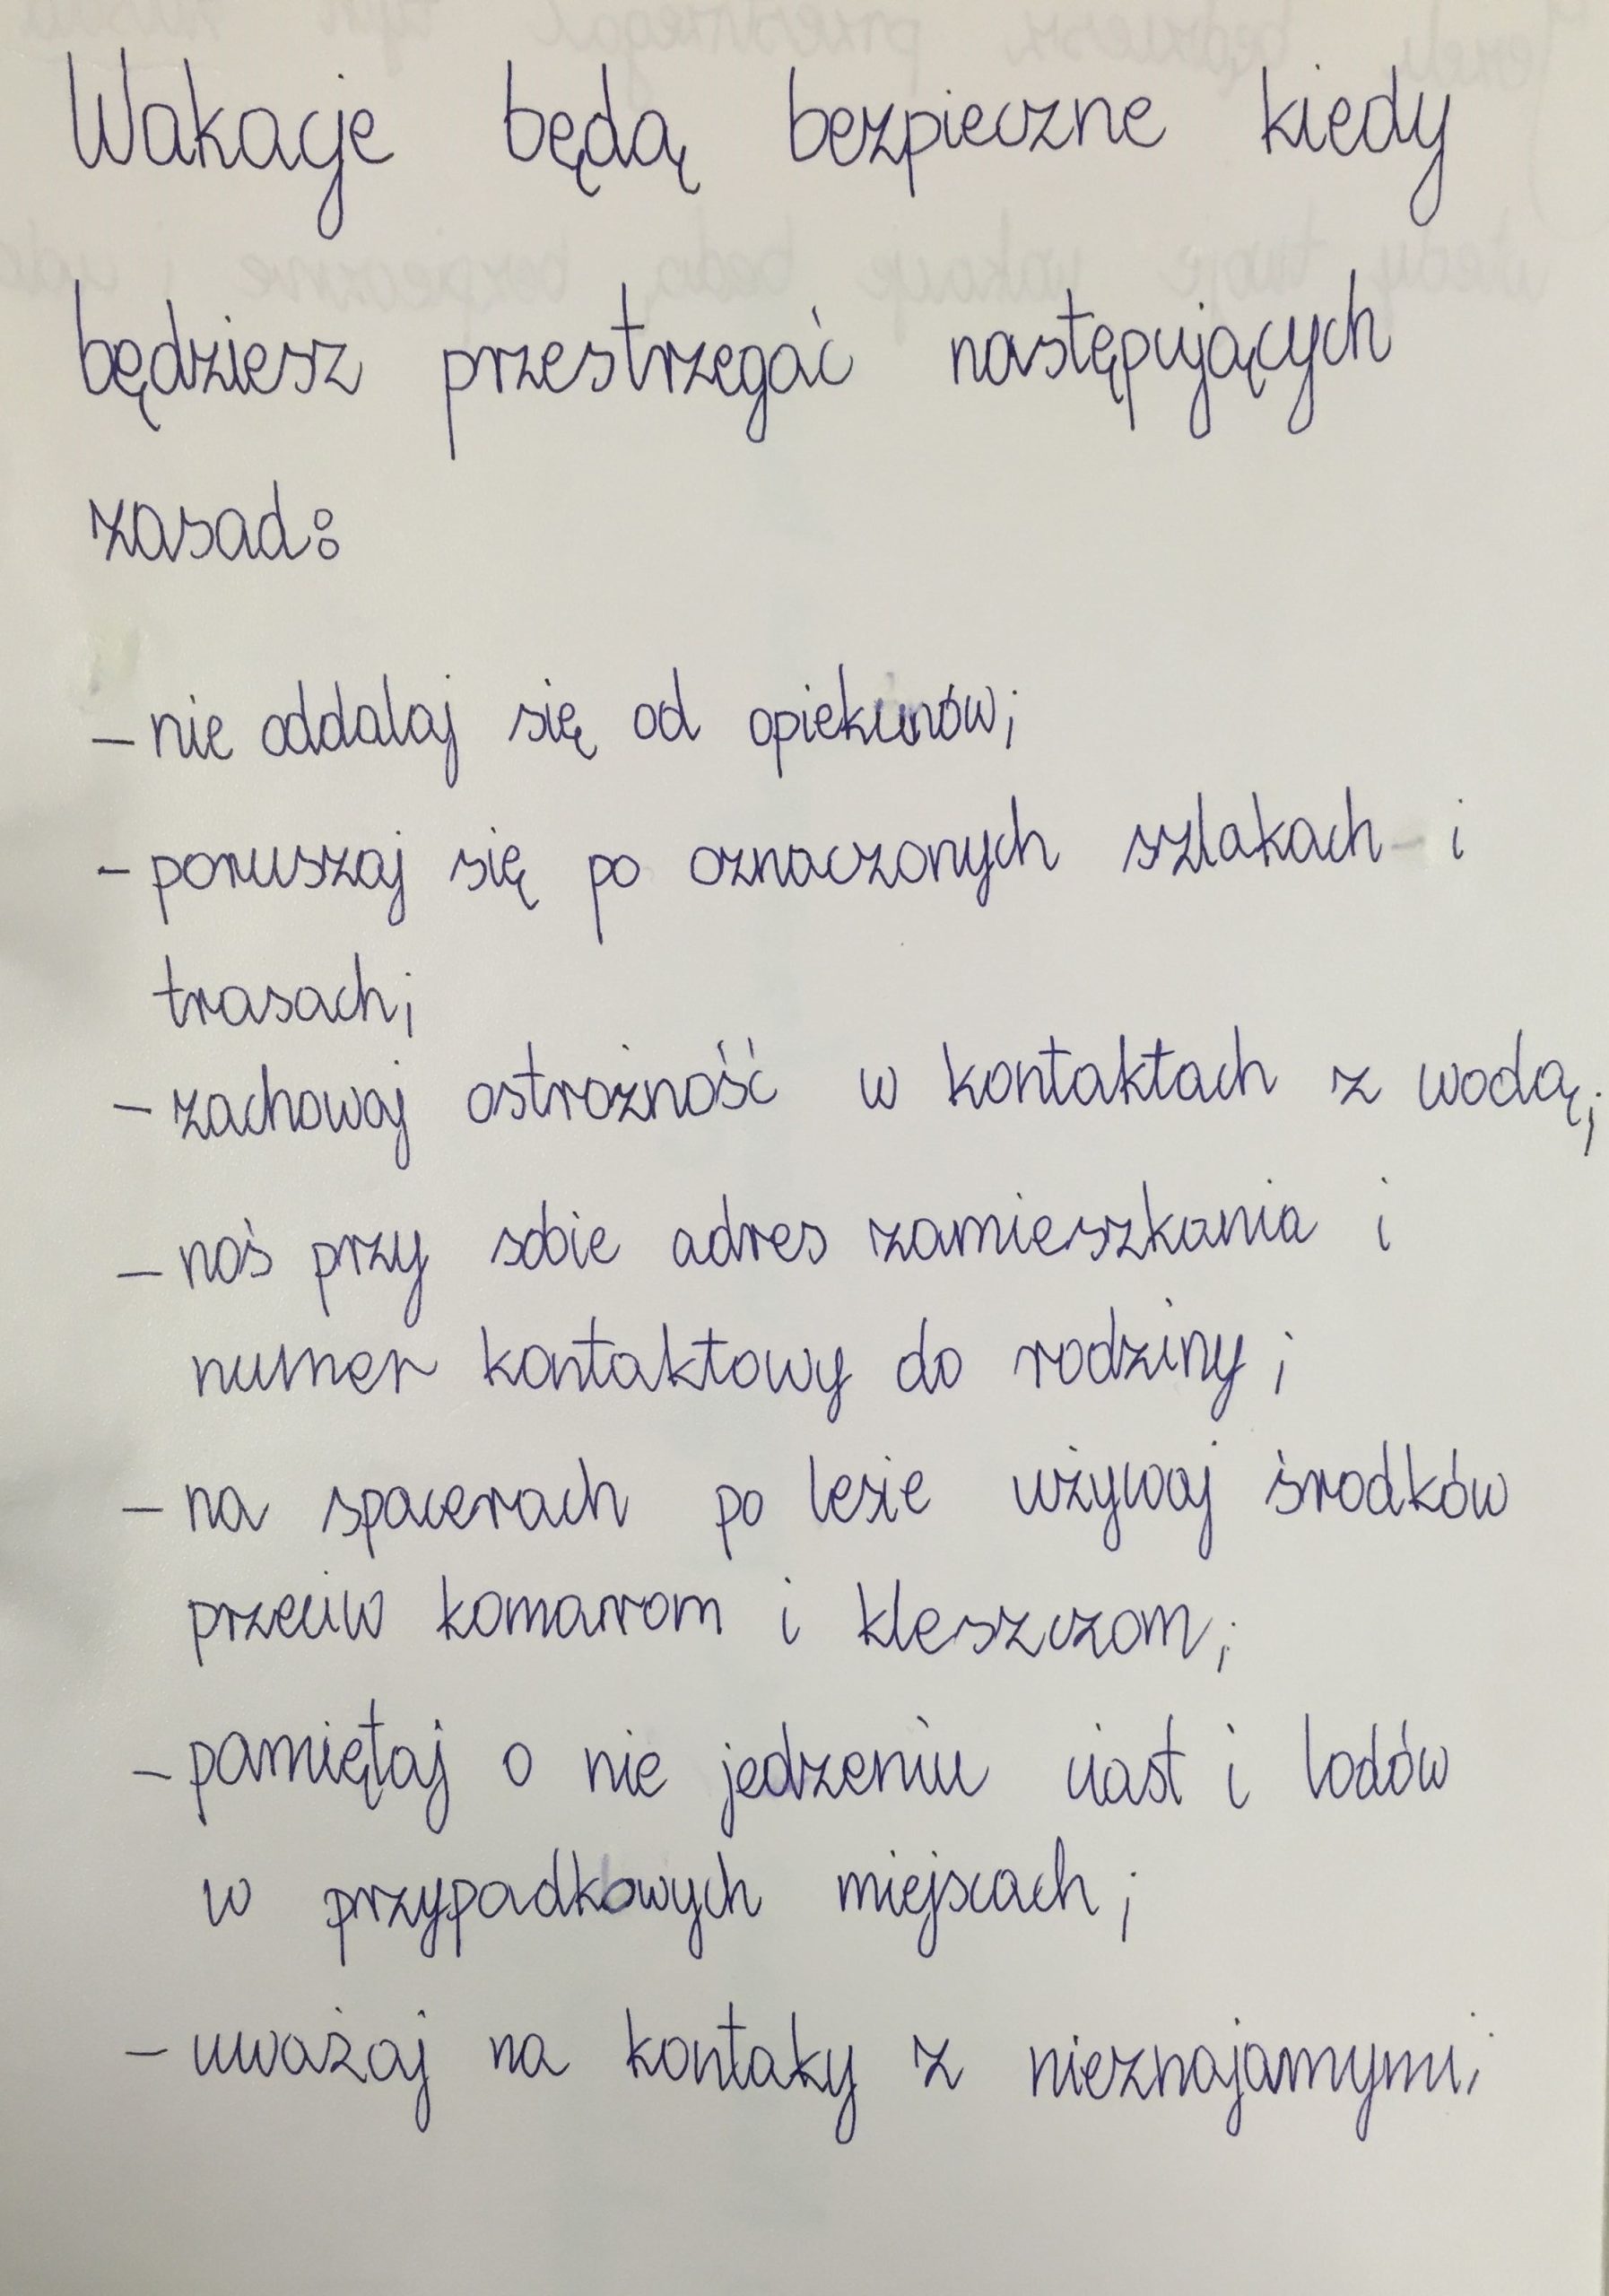 Wakacje będą bezpieczne kiedy
będziesz przestrzegać następujących
zasad:
– nie oddalaj się od opiekunów;
– poruszaj się po oznaczonych szlakach i
trasach;
– zachowaj ostrożność w kontaktach z wodą;
– noś przy sobie adres zamieszkania i
numer kontaktowy do rodziny;
– na spacerach po lesie używaj środków
przeciw komarom i kleszczom;
– pamiętaj o nie jedzeniu ciast i lodów
w przypadkowych miejscach;
– uważaj na kontaky z nieznajamymi;